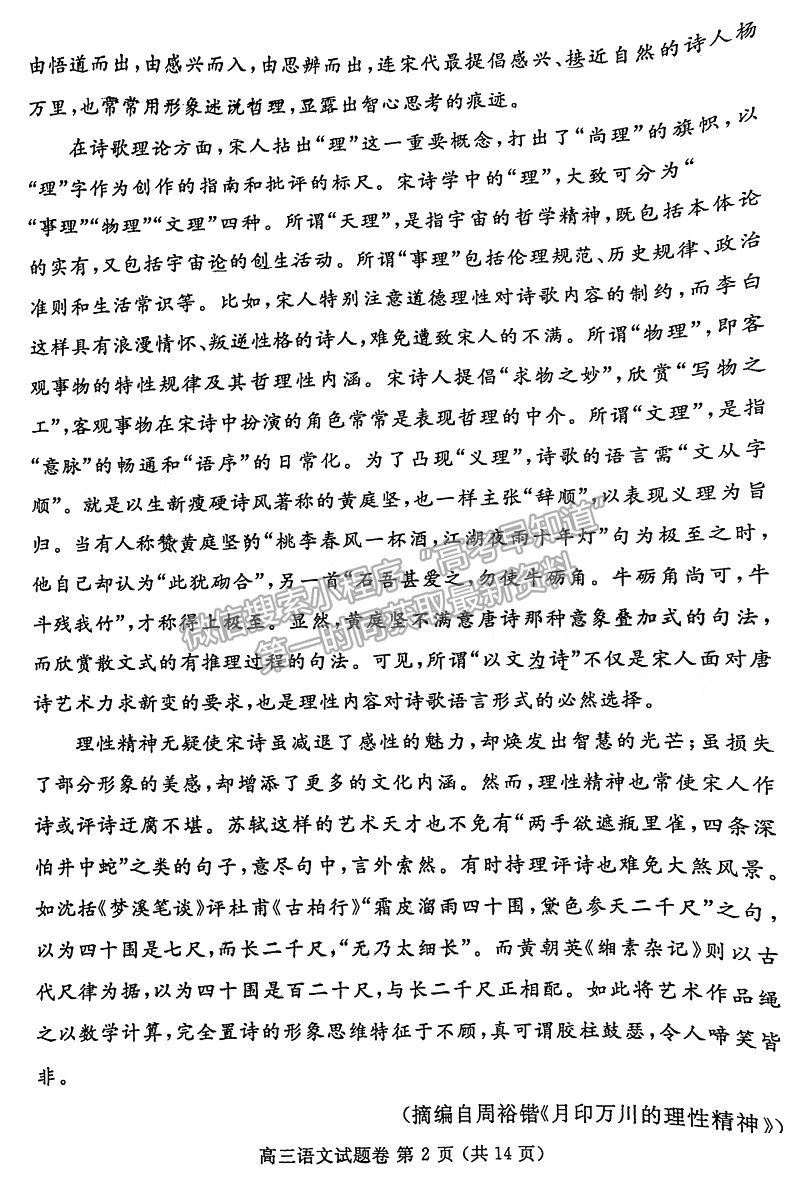 由悟道而出，由感兴而入，由思辨而出，连宋代最提倡感兴、接近自然的诗人杨
万里，也常常用形象述说哲理，显露出智心思考的痕迹。
在诗歌理论方面，宋人拈出“理”这一重要概念，打出了“尚理”的旗帜，以
“理”字作为创作的指南和批评的标尺。宋诗学中的“理”，大致可分为“
“事理”“物理”“文理”四种。所谓“天理”，是指宇宙的哲学精神，既包括本体论
的实有，又包括宇宙论的创生活动。所谓“事理”包括伦理规范、历史规律、政治
准则和生活常识等。比如，宋人特别注意道德理性对诗歌内容的制约，而李白
这样具有浪漫情怀、叛逆性格的诗人，难免遭致宋人的不满。所谓“物理”，即客
观事物的特性规律及其哲理性内涵。宋诗人提倡“求物之妙”，欣赏“写物之
工”，客观事物在宋诗中扮演的角色常常是表现哲理的中介。所谓“文理”，是指
“意脉”的畅通和“语序”的日常化。为了凸现“义理”，诗歌的语言需“文从字
顺”。就是以生新瘦硬诗风著称的黄庭坚，也一样主张“辞顺”，以表现义理为旨
归。当有人称赞黄庭坚的“桃李春风一杯酒，江湖夜雨十年灯”句为极至之时，
他自己却认为“此犹砌合”，另一首“石吾甚爱之，勿使牛砺角。牛砺角尚可，牛
斗残我竹”，才称得上极至。显然，黄庭坚不满意唐诗那种意象叠加式的句法，
而欣赏散文式的有推理过程的句法。可见，所谓“以文为诗”不仅是宋人面对唐
诗艺术力求新变的要求，也是理性内容对诗歌语言形式的必然选择。
理性精神无疑使宋诗虽减退了感性的魅力，却焕发出智慧的光芒；虽损失
了部分形象的美感，却增添了更多的文化内涵。然而，理性精神也常使宋人作
诗或评诗迂腐不堪。苏轼这样的艺术天才也不免有“两手欲遮瓶里雀，四条深
怕井中蛇”之类的句子，意尽句中，言外索然。有时持理评诗也难免大煞风景。
如沈括《梦溪笔谈》评杜甫《古柏行》“霜皮溜雨四十围，黛色参天二千尺”之句，
以为四十围是七尺，而长二千尺，“无乃太细长”。而黄朝英《缃素杂记》则以古
代尺律为据，以为四十围是百二十尺，与长二千尺正相配。如此将艺术作品绳
之以数学计算，完全置诗的形象思维特征于不顾，真可谓胶柱鼓瑟，令人啼笑皆
非。
（摘编自周裕锴《月印万川的理性精神》）
高三语文试题卷 第 2 页（共 14 页）
微信搜索小程序“高考早知道”
第一时间获取最新资料